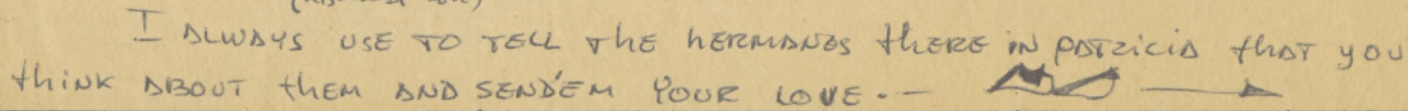 I ALWAYS USE TO TELL THE HERMANOS THERE IN PATRICIA THAT YOU
THINK ABOUT THEM AND SEND'EM YOUR LOVE.-